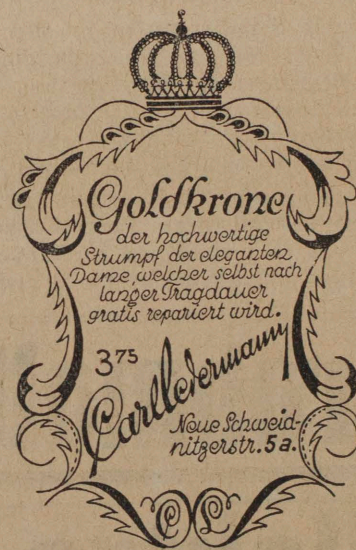 Goldkrone
der hochwertige
Strumpf der eleganten
Dame, welcher selbst nach
langer Tragdauer
gratis repariert wird.
3 75
Carl Ledermann
Neue Schweid-
nitzerstr. 5a.
C L